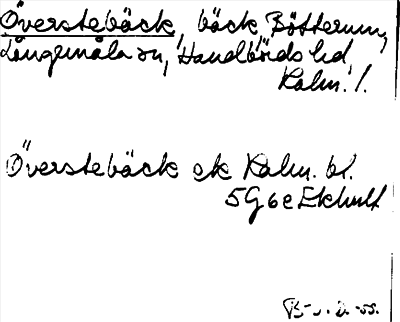 Överstebäck, bäck, Bötterum,
Långemåla sn, Handbörds hd,
Kalm. l.
Överstebäck ek Kalm. bl.
5G6e Ekhult